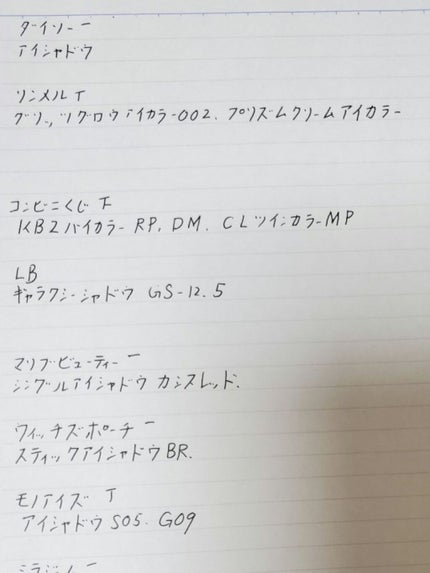 ダイソー 一
アイシャドウ
リンメル T
グリッツグロウアイカラー002. プリズムクリームアイカラー
コンビニくじ 下
KBZバイカラー RP. DM. CLツインカラーMP
LB
ギャラクシーシャドウ GS-12.5
マリブビューティー 一
シングルアイシャドウ カシスレッド.
ウィッチズポーチ 一
スティックアイシャドウBR.
モノアイズ T
アイシャドウ S05. G09